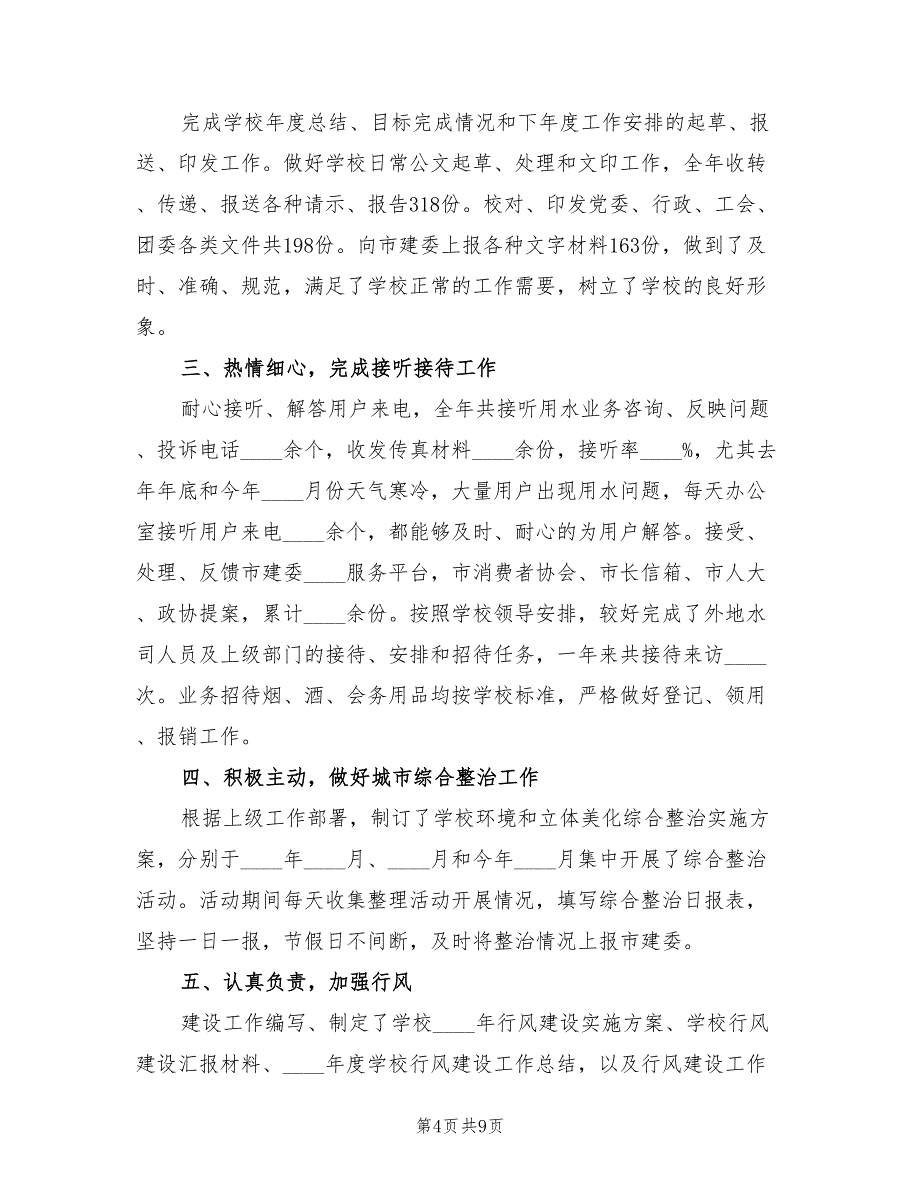 完成学校年度总结、目标完成情况和下年度工作安排的起草、报
送、印发工作。做好学校日常公文起草、处理和文印工作，全年收转
、传递、报送各种请示、报告318份。校对、印发党委、行政、工会、
团委各类文件共198份。向市建委上报各种文字材料163份，做到了及
时、准确、规范，满足了学校正常的工作需要，树立了学校的良好形
象。
三、热情细心，完成接听接待工作
耐心接听、解答用户来电，全年共接听用水业务咨询、反映问题
、投诉电话____余个，收发传真材料____余份，接听率____%，尤其去
年年底和今年____月份天气寒冷，大量用户出现用水问题，每天办公
室接听用户来电____余个，都能够及时、耐心的为用户解答。接受、
处理、反馈市建委____服务平台，市消费者协会、市长信箱、市人大
、政协提案，累计____余份。按照学校领导安排，较好完成了外地水
司人员及上级部门的接待、安排和招待任务，一年来共接待来访____
次。业务招待烟、酒、会务用品均按学校标准，严格做好登记、领用
、报销工作。
四、积极主动，做好城市综合整治工作
根据上级工作部署，制订了学校环境和立体美化综合整治实施方
案，分别于____年____月、____月和今年____月集中开展了综合整治
活动。活动期间每天收集整理活动开展情况，填写综合整治日报表，
坚持一日一报，节假日不间断，及时将整治情况上报市建委。
五、认真负责，加强行风
建设工作编写、制定了学校____年行风建设实施方案、学校行风
建设汇报材料、____年度学校行风建设工作总结，以及行风建设工作
第4页 共9页